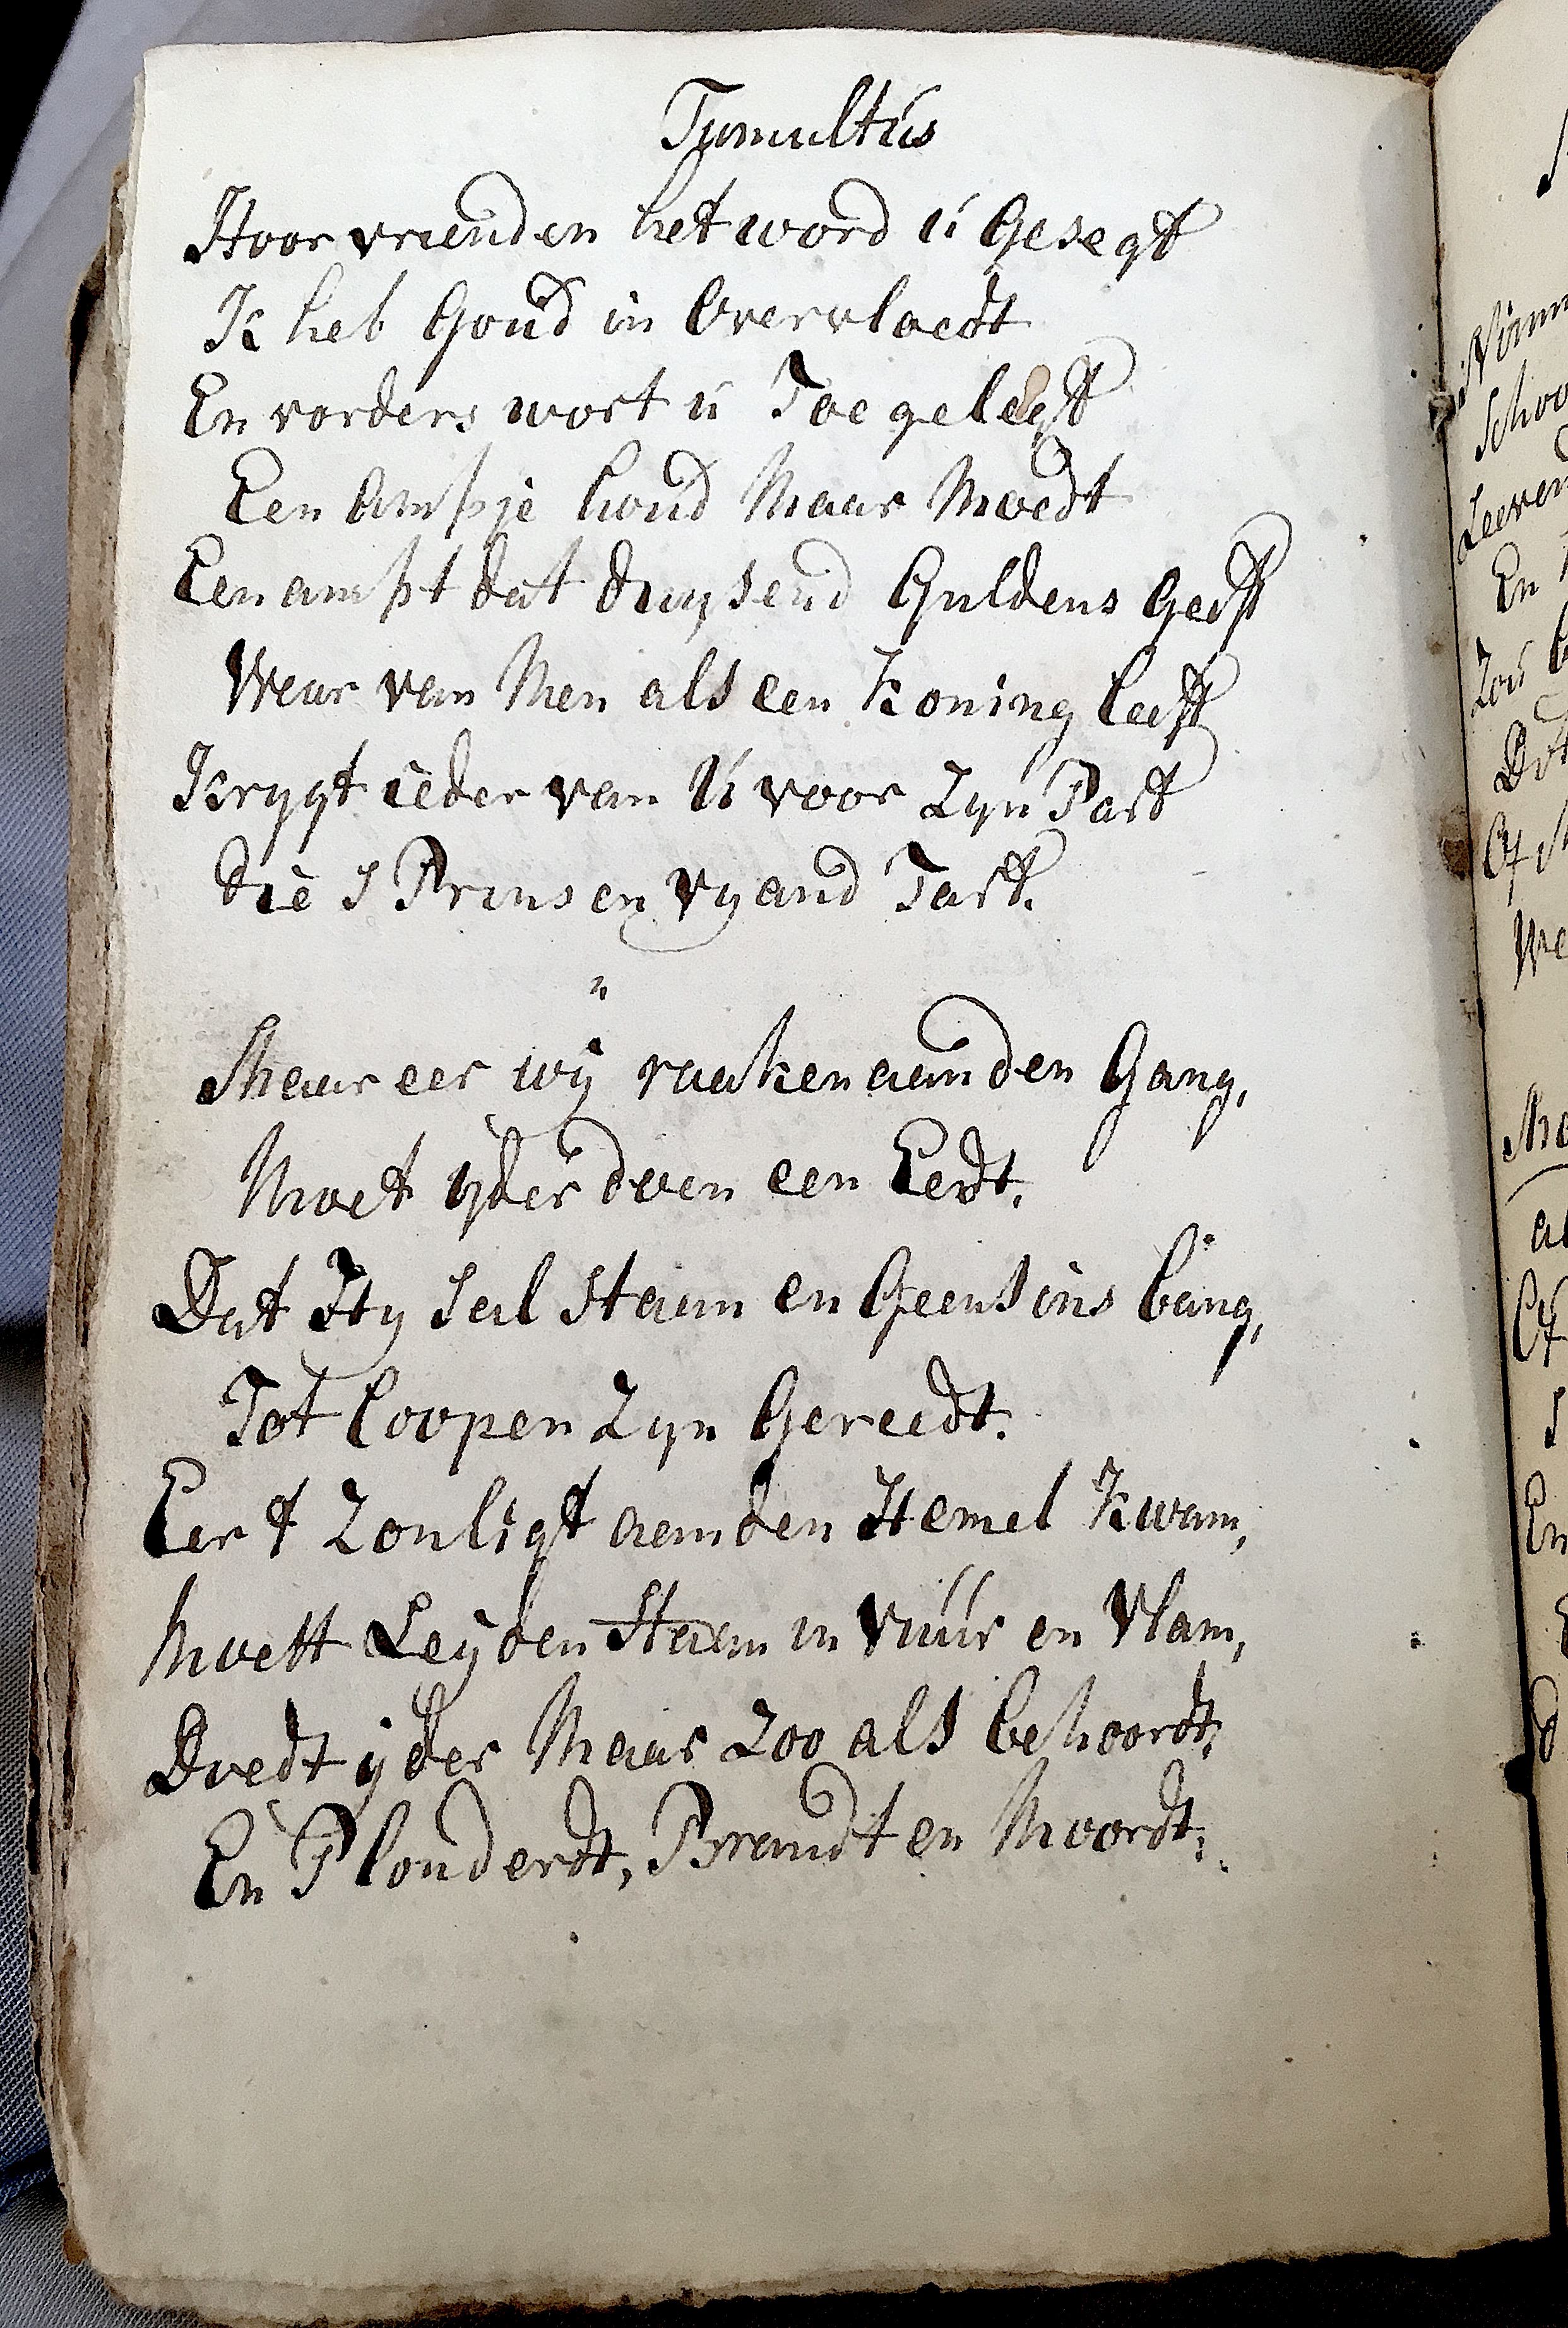 Tumultus
Hoor vrienden het word u Gesegt
Ik heb Goud in Overvloedt
En vorders wort u Toe gelegt
Een Ampje houd Maar Moedt
Een ampt dat duysend Guldens Geeft
Waar van Men als een Koning leeft
Krygt ieder van U voor Zyn Part
die S Prinsen Vyand Tart.
Maar eer wÿ raaken aan den Gang,
Moet yder doen een Eedt,
Dat Hy Sal Staan en Geensins bang,
Tot loopen Zyn Gereedt.
Eer t Zonligt aan den Hemel Kwam,
Moett Leÿden Staan in Vuur en Vlam,
Doedt yder Maar Zoo als behoordt,
En Plonderdt, Brandt en Moordt.